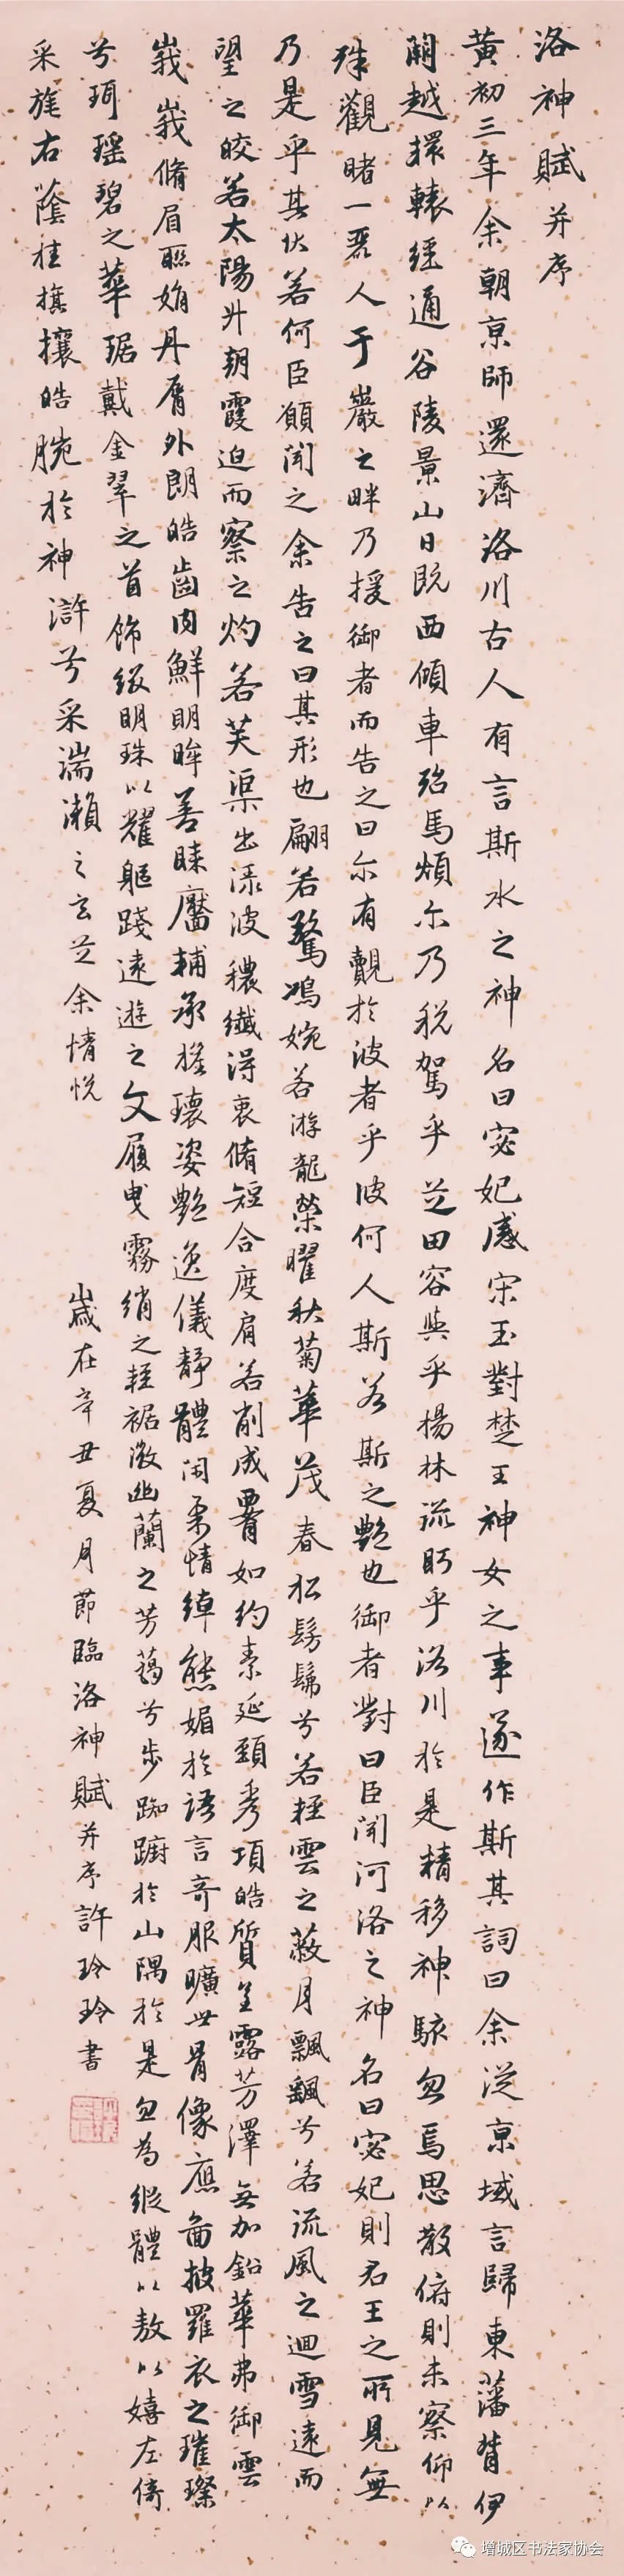 洛神賦并序
黃初三年余朝京師還濟洛川古人有言斯水之神名曰宓妃感宋玉對楚王神女之事遂作斯其詞曰余從京域言歸東藩背伊
闕越轘轅經通谷陵景山日既西傾車殆馬煩尔乃税駕乎芝田容與乎楊林流眄乎洛川於是精移神駭忽焉思散俯則未察仰以
殊觀睹一麗人于巖之畔乃援御者而告之曰尔有覿於彼者乎彼何人斯若斯之艷也御者對曰臣聞河洛之神名曰宓妃則君王之所見無
乃是乎其狀若何臣願聞之余告之曰其形也翩若驚鴻婉若游龍榮曜秋菊華茂春松髣髴兮若輕雲之蔽月飄颻兮若流風之迴雪遠而
望之皎若太陽升朝霞迫而察之灼若芙渠出淥波穠纖得衷脩短合度肩若削成要如約素延頸秀項皓質呈露芳澤無加鉛華弗御雲
峩峩脩眉聯娟丹脣外朗皓齒内鮮明眸善睞靨輔承權瓌姿艷逸儀靜體閑柔情綽態媚於語言奇服曠世骨像應圖披羅衣之璀璨
兮珥瑶碧之華琚戴金翠之首飾綴明珠以耀軀踐遠遊之文履曳霧綃之輕裾微幽蘭之芳藹兮步踟躕於山隅於是忽焉縱體以敖以嬉左倚
采旄右蔭桂旗攘皓腕於神滸兮采湍瀨之玄芝余情悦
歲在辛丑夏月節臨洛神賦并序許玲玲書
增城区书法家协会